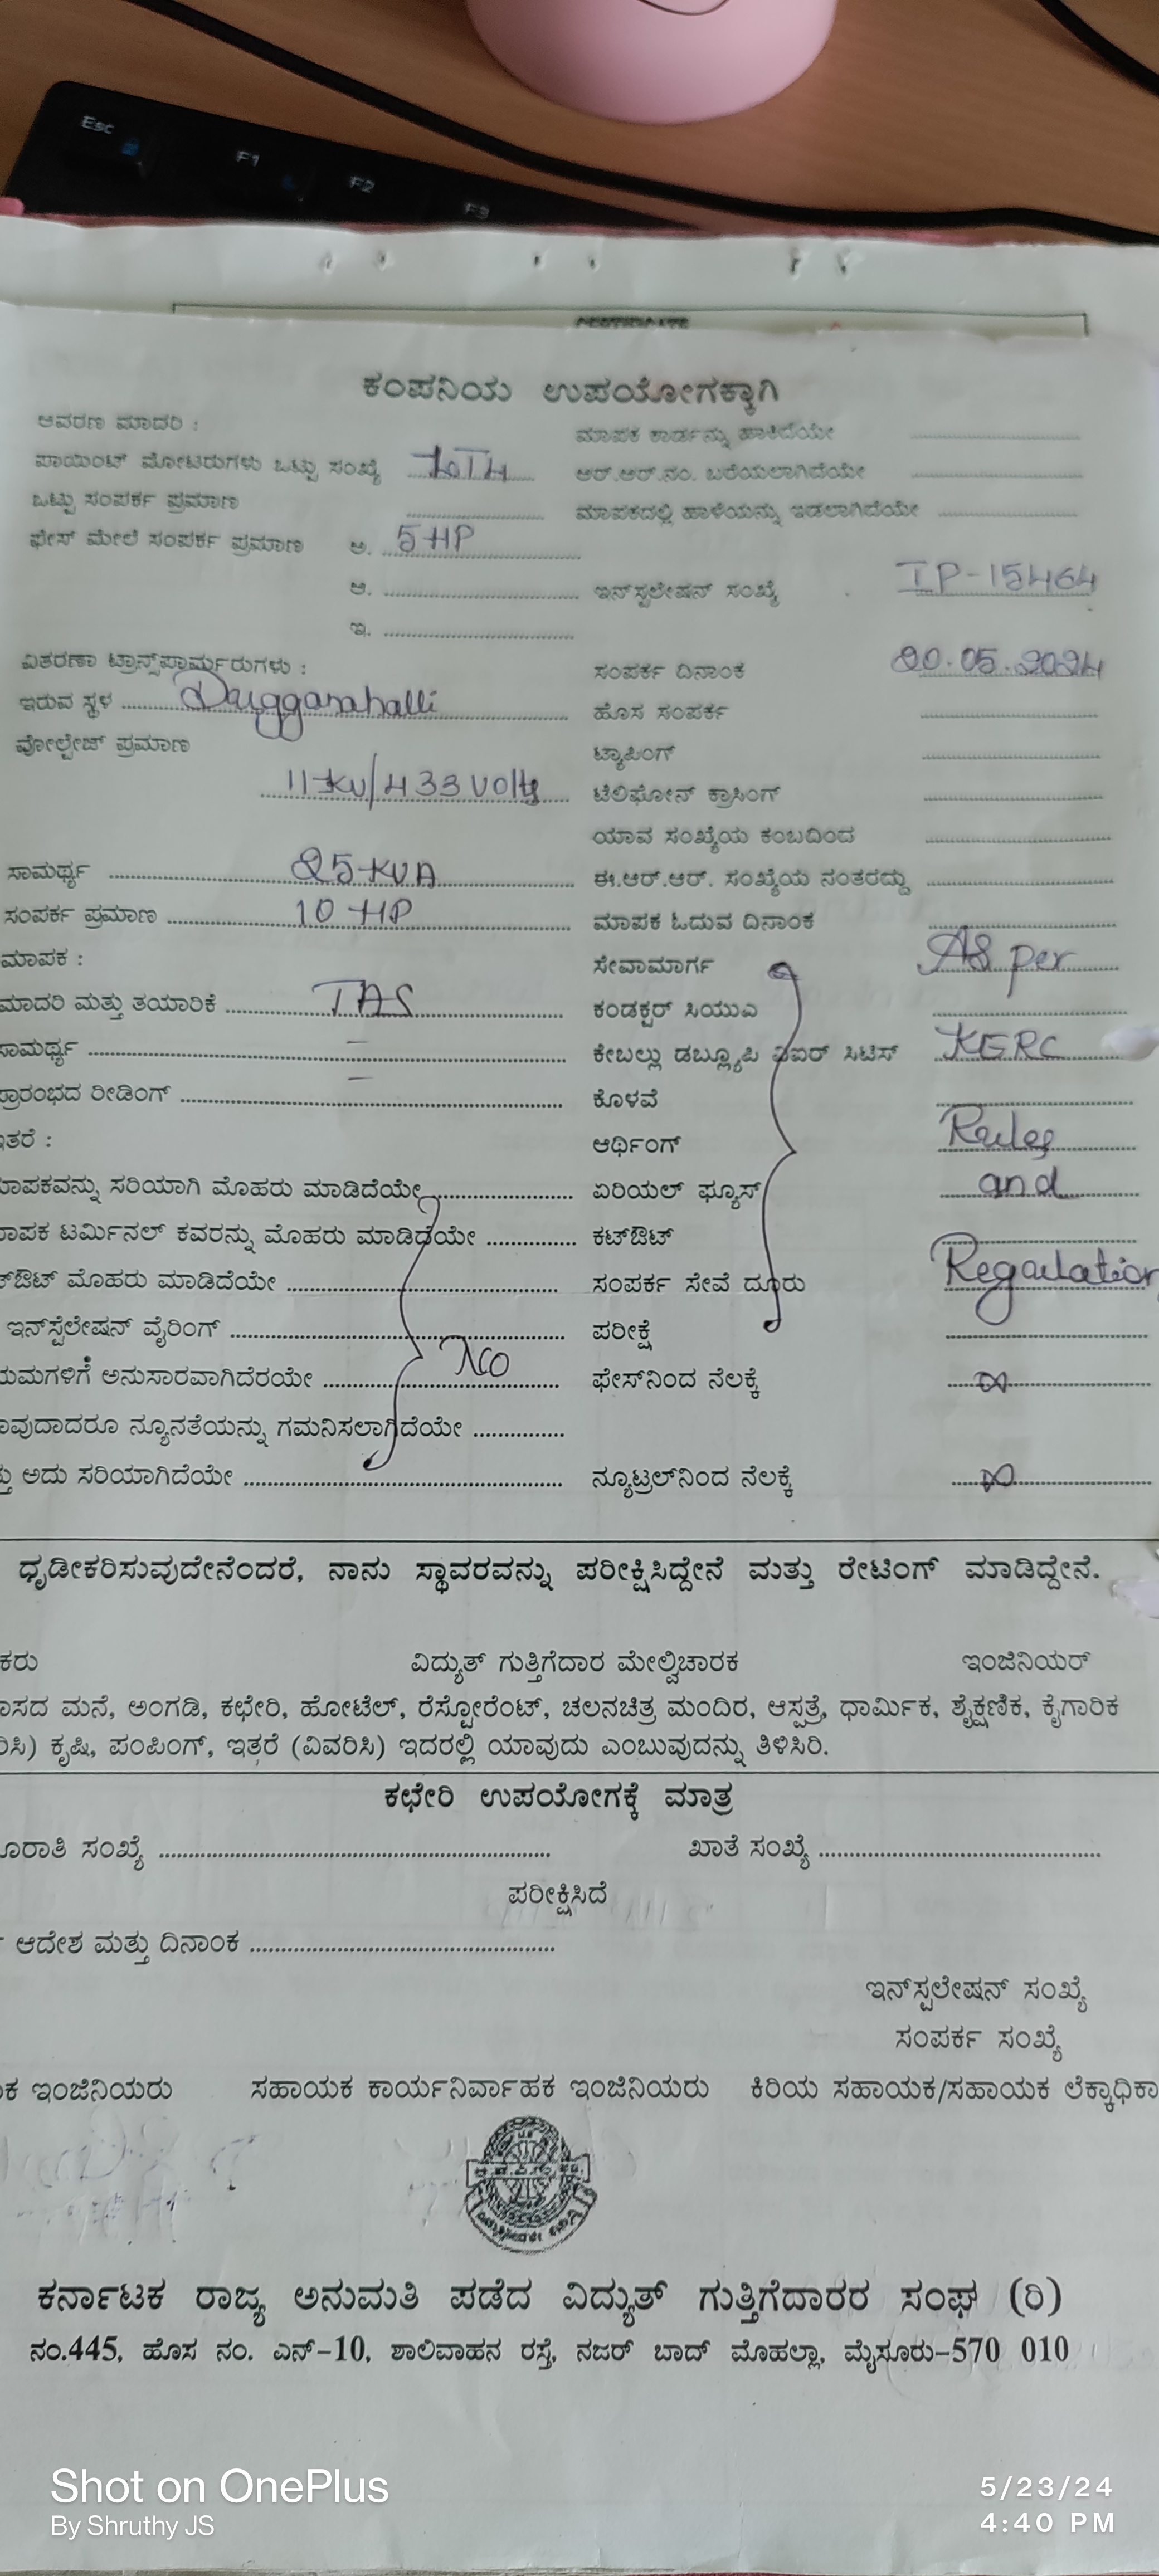 Esc
F1
F2
F3
CERTIFICATE
ಕಂಪನಿಯ ಉಪಯೋಗಕ್ಕಾಗಿ
ಆವರಣ ಮಾದರಿ :
ಮಾಪಕ ಕಾರ್ಡನ್ನು ಹಾಕಿದೆಯೇ
ಪಾಯಿಂಟ್ ಮೋಟರುಗಳು ಒಟ್ಟು ಸಂಖ್ಯೆ
ಆರ್.ಆರ್.ನಂ. ಬರೆಯಲಾಗಿದೆಯೇ
ಒಟ್ಟು ಸಂಪರ್ಕ ಪ್ರಮಾಣ
ಮಾಪಕದಲ್ಲಿ ಹಾಳೆಯನ್ನು ಇಡಲಾಗಿದೆಯೇ
ಫೇಸ್ ಮೇಲೆ ಸಂಪರ್ಕ ಪ್ರಮಾಣ ಅ. 5 HP
ಆ.
ಇನ್‌ಸ್ಟಲೇಷನ್ ಸಂಖ್ಯೆ IP-15464
ಇ.
ವಿತರಣಾ ಟ್ರಾನ್ಸ್‌ಫಾರ್ಮರುಗಳು :
ಸಂಪರ್ಕ ದಿನಾಂಕ 20.05.2024
ಇರುವ ಸ್ಥಳ Duggarahalli
ಹೊಸ ಸಂಪರ್ಕ
ವೋಲ್ಟೇಜ್ ಪ್ರಮಾಣ
ಟ್ಯಾಪಿಂಗ್
11 KV/433 Volts
ಟೆಲಿಫೋನ್ ಕ್ರಾಸಿಂಗ್
ಯಾವ ಸಂಖ್ಯೆಯ ಕಂಬದಿಂದ
ಸಾಮರ್ಥ್ಯ 25 KVA
ಈ.ಆರ್.ಆರ್. ಸಂಖ್ಯೆಯ ನಂತರದ್ದು
ಸಂಪರ್ಕ ಪ್ರಮಾಣ 10 HP
ಮಾಪಕ ಓದುವ ದಿನಾಂಕ
ಮಾಪಕ :
ಸೇವಾಮಾರ್ಗ As per
ಮಾದರಿ ಮತ್ತು ತಯಾರಿಕೆ TAS
ಕಂಡಕ್ಟರ್ ಸಿಯುಎ
ಸಾಮರ್ಥ್ಯ –
ಕೇಬಲ್ಲು ಡಬ್ಲ್ಯೂಪಿ ವಿಐಆರ್ ಸಿಟಿಸ್ KERC
ಪ್ರಾರಂಭದ ರೀಡಿಂಗ್ –
ಕೊಳವೆ
ಇತರೆ :
ಆರ್ಥಿಂಗ್ Rules
ಮಾಪಕವನ್ನು ಸರಿಯಾಗಿ ಮೊಹರು ಮಾಡಿದೆಯೇ
ಏರಿಯಲ್ ಫ್ಯೂಸ್ and
ಮಾಪಕ ಟರ್ಮಿನಲ್ ಕವರನ್ನು ಮೊಹರು ಮಾಡಿದೆಯೇ
ಕಟ್‌ಔಟ್
ಟ್‌ಔಟ್ ಮೊಹರು ಮಾಡಿದೆಯೇ
ಸಂಪರ್ಕ ಸೇವೆ ದೂರು Regulation
ಇನ್‌ಸ್ಟಲೇಷನ್ ವೈರಿಂಗ್
ಪರೀಕ್ಷೆ
ಯಮಗಳಿಗೆ ಅನುಸಾರವಾಗಿದೆರಯೇ NO
ಫೇಸ್‌ನಿಂದ ನೆಲಕ್ಕೆ ∞
ಾವುದಾದರೂ ನ್ಯೂನತೆಯನ್ನು ಗಮನಿಸಲಾಗಿದೆಯೇ
ತ್ತು ಅದು ಸರಿಯಾಗಿದೆಯೇ
ನ್ಯೂಟ್ರಲ್‌ನಿಂದ ನೆಲಕ್ಕೆ ∞
ಧೃಡೀಕರಿಸುವುದೇನೆಂದರೆ, ನಾನು ಸ್ಥಾವರವನ್ನು ಪರೀಕ್ಷಿಸಿದ್ದೇನೆ ಮತ್ತು ರೇಟಿಂಗ್ ಮಾಡಿದ್ದೇನೆ.
ಕರು ವಿದ್ಯುತ್ ಗುತ್ತಿಗೆದಾರ ಮೇಲ್ವಿಚಾರಕ ಇಂಜಿನಿಯರ್
ಾಸದ ಮನೆ, ಅಂಗಡಿ, ಕಛೇರಿ, ಹೋಟೆಲ್, ರೆಸ್ಟೋರೆಂಟ್, ಚಲನಚಿತ್ರ ಮಂದಿರ, ಆಸ್ಪತ್ರೆ, ಧಾರ್ಮಿಕ, ಶೈಕ್ಷಣಿಕ, ಕೈಗಾರಿಕ
ರಿಸಿ) ಕೃಷಿ, ಪಂಪಿಂಗ್, ಇತ್ತರೆ (ವಿವರಿಸಿ) ಇದರಲ್ಲಿ ಯಾವುದು ಎಂಬುವುದನ್ನು ತಿಳಿಸಿರಿ.
ಕಛೇರಿ ಉಪಯೋಗಕ್ಕೆ ಮಾತ್ರ
ೂರಾತಿ ಸಂಖ್ಯೆ ಖಾತೆ ಸಂಖ್ಯೆ
ಪರೀಕ್ಷಿಸಿದೆ
ಆದೇಶ ಮತ್ತು ದಿನಾಂಕ
ಇನ್‌ಸ್ಟಲೇಷನ್ ಸಂಖ್ಯೆ
ಸಂಪರ್ಕ ಸಂಖ್ಯೆ
ಕ ಇಂಜಿನಿಯರು ಸಹಾಯಕ ಕಾರ್ಯನಿರ್ವಾಹಕ ಇಂಜಿನಿಯರು ಕಿರಿಯ ಸಹಾಯಕ/ಸಹಾಯಕ ಲೆಕ್ಕಾಧಿಕಾ
ಕರ್ನಾಟಕ ರಾಜ್ಯ ಅನುಮತಿ ಪಡೆದ ವಿದ್ಯುತ್ ಗುತ್ತಿಗೆದಾರರ ಸಂಘ (ರಿ)
ನಂ.445, ಹೊಸ ನಂ. ಎನ್-10, ಶಾಲಿವಾಹನ ರಸ್ತೆ, ನಜರ್ ಬಾದ್ ಮೊಹಲ್ಲಾ, ಮೈಸೂರು-570 010
Shot on OnePlus
By Shruthy JS
5/23/24
4:40 PM